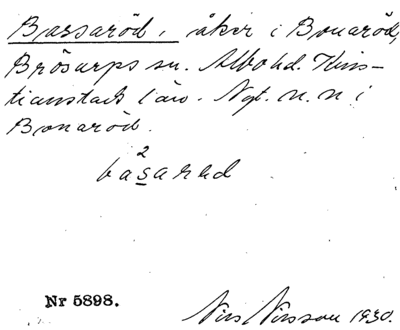 Bassaröd, åker i Bonaröd,
Brösarps sn. Albo hd. Kris-
tianstads län. Ngt. n. n i
Bonaröd.
2
basarad
Nr 5898.
Nils Nilsson 1930.